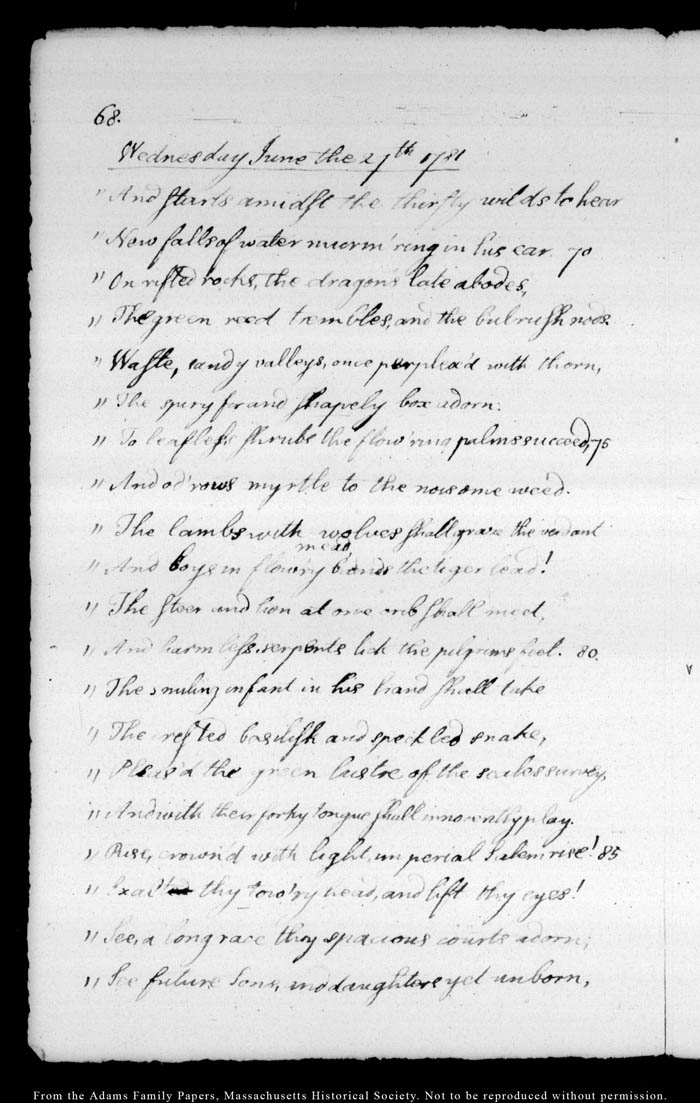 68.
Wednesday June the 27th 1781
" And starts amidst the thirsty wilds to hear
" New falls of water murm'ring in his ear. 70
" On rifted rocks, the dragon's late abodes,
" The green reed trembles, and the bulrush nods.
" Waste, sandy valleys, once perplex'd with thorn,
" The spiry fir and shapely box adorn:
" To leafless shrubs the flow'ring palms succeed, 75
" And od'rous myrtle to the noisome weed.
" The lambs with wolves shall graze the verdant
mead,
" And boys in flow'ry bands the tiger lead!
" The steer and lion at one crib shall meet,
" And harmless serpents lick the pilgrims feet. 80.
" The smiling infant in his hand shall take
" The crested basilisk and speckled snake,
" Pleas'd the green lustre of the scales survey,
" And with their forky tongue shall innocently play.
" Rise, crown'd with light, imperial Salem rise! 85
" Exalt thy tow'ry head, and lift thy eyes!
" See, a long race thy spacious courts adorn;
" See future Sons, and daughters yet unborn,
From the Adams Family Papers, Massachusetts Historical Society. Not to be reproduced without permission.